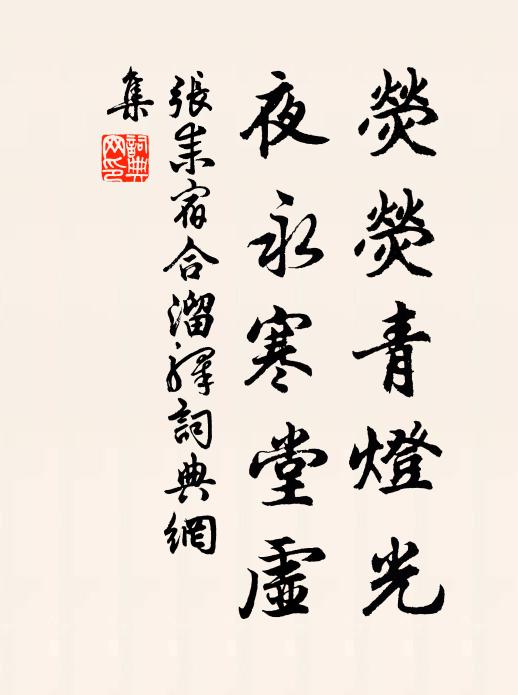 熒熒青燈光
夜永寒堂虛
張耒宿合溜驛詞典網
集
詞典
网印